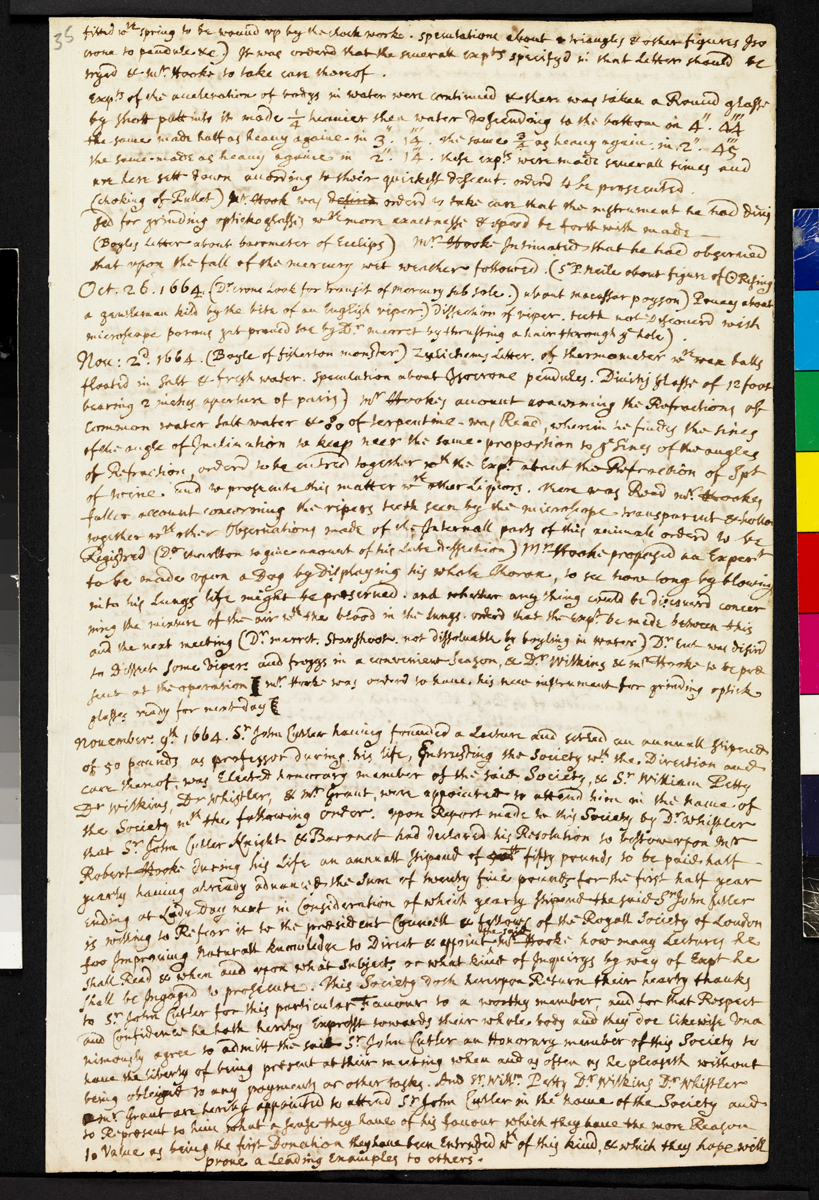 35
fitted wth spring to be wound up by the clock worke. Speculations about triangles & other figures Iso
crone to pendule &c) It was ordered that the severall expts specifyd in that Letter should be
tryed & mr. Hooke to take care thereof.
Expts of the acceleration of bodys in water were continued & there was taken a Round glasse
by shott putt into it made 1/4 heavier then water descending to the bottom in 4". 44'''
the same made half as heavy againe in 3". 14'''. the same 3/4 as heavy again. in. 2". 45'''
the same made as heavy againe in 2". 14'''. these expts were made severall times and
are here sett down according to their quickest descent. orderd to be prosecuted.
(choking of Pullet) mr. Hook was desird orderd to take care that the instrument he had divi
sed for grinding optick glasses wth more exactnesse & speed be forth with made
(Boyles Letter about barometer of Eclips) Mr. Hooke Intimated that he had observed
that upon the fall of the mercury wet weather followed. (Sr P. Neile about figure of ☉ Rising
Oct. 26. 1664. (Dr. crone Look for transit of mercury sub sole.) about macassar poyson) Povey about
a gentleman kild by the bite of an English viper) Dissection of viper. teeth not Discoverd with
microscope porous yet proved soe by Dr. merret by thrusting a hair through ye hole).
Nov: 2d. 1664. (Boyle of fisherton monster) Zulichems Letter. of thermometer wth wax balls
floated in salt & fresh water. Speculation about Isocrone pendules. Divinis glasse of 12 foot
bearing 2 inches aperture of paris) Mr Hookes account concerning the Refractions of
Common water salt water & of Serpentine was Read, wherein he findes the sines
of the angle of Inclination to keep neer the same proportion to ye sines of the angles
of Refraction, orderd to be entred together wth the Expt about the Refraction of Spt
of wine. and to prosecute this matter wth other Liquors. there was Read mr. Hookes
fuller account concerning the vipers teeth seen by the microscope transparent & hollow
together wth other Observations made of the Internall parts of this animale orderd to be
Registred (Dr. charlton to give account of his Late dissection) Mr. Hooke proposed an Expert
to be made upon a Dog by Displaying his whole Thorax, to see how long by blowing
into his Lungs life might be preserved. and whether any thing could be discoverd concer
ning the mixture of the air wth the blood in the lungs. orderd that the Expt be made between this
and the next meeting (Dr. merret. Starshoot. not dissoluable by boyling in water) Dr. Ent was desird
to Dissect some vipers and froggs in a convenient Season, & Dr. Wilkins & mr. Hooke to be pre
sent at the operation [mr. Hooke was orderd to have his new instrument for grinding optick
glasses ready for next day]
November. 9th. 1664. Sr. John Cutler having founded a Lecture and setled an annuall stipend
of 50 pounds as professor during his life, Entrusting the Society wth the Direction and
care thereof, was Elected honorary member of the said Society, & Sr. William Petty
Dr Wilkins, Dr Whistler, & mr. Grant, were appointed to attend him in the name of
the Society wth the following order. upon Report made to this Society by Dr. Whistler
that Sr. John Cutler Knight & Baronet had declared his Resolution to bestow upon Mr
Robert Hooke during his Life an annuall stipend of fifty pounds to be paid half
yearly having already advanced the Sum of twenty five pounds for the first half year
Ending at Lady Day next in Consideration of which yearly stipend the said Sr. John Cutler
is willing to Referr it to the president Councell & fellows of the Royall Society of London
for Improving Naturall knowledge to Direct & appoint the said Mr. Hooke how many Lectures he
shall Read & when and upon what Subject, or what kind of Inquirys by way of Expt he
shall be Ingaged to prosecute. This Society doth hereupon Return their hearty thanks
to Sr. John Cutler for this particular Favour to a worthy member, and for that Respect
and Confidence he hath hereby Exprest towards their whole body and they doe likewise Una
nimously agree to admitt the said Sr. John Cutler an Honorary member of this Society to
have the liberty of being present at their meeting when and as often as he pleaseth without
being obleiged to any payments or other tasks. And Sr. Willm. Petty Dr. Wilkins Dr. Whistler
mr. Grant are hereby appointed to attend Sr. John Cutler in the name of the Society and
to Represent to him what a sense they have of his favour which they have the more Reason
to Value as being the first Donation they have been Entrusted wth of this kind, & which they hope will
prove a Leading Examples to others.